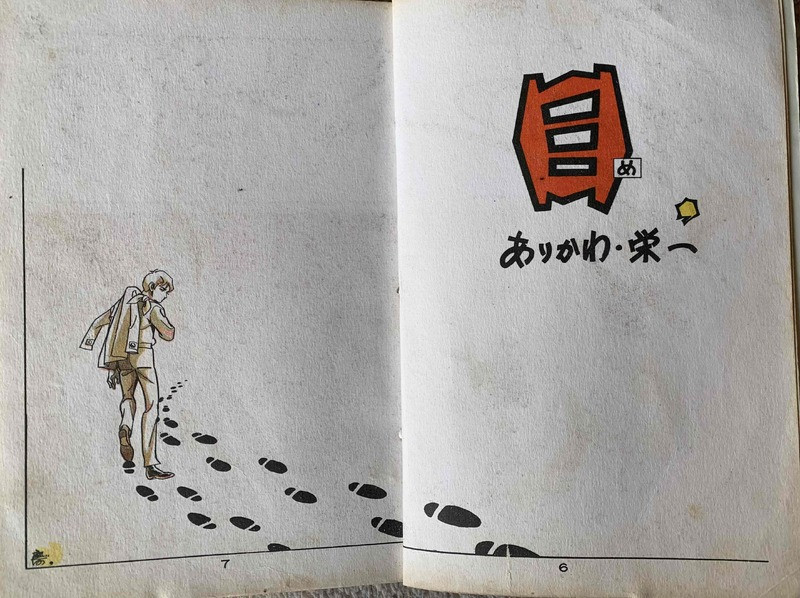 目
め
ありかわ・栄一
6
7